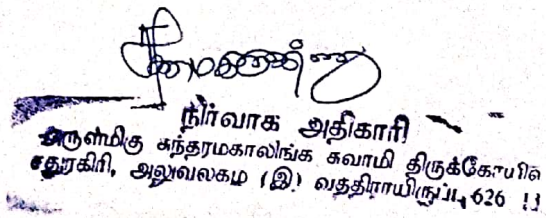 நிர்வாக அதிகாரி
அருள்மிகு சுந்தரமகாலிங்க சுவாமி திருக்கோயில்
சதுரகிரி, அலுவலகம் (இ) வத்திராயிருப்பு, 626